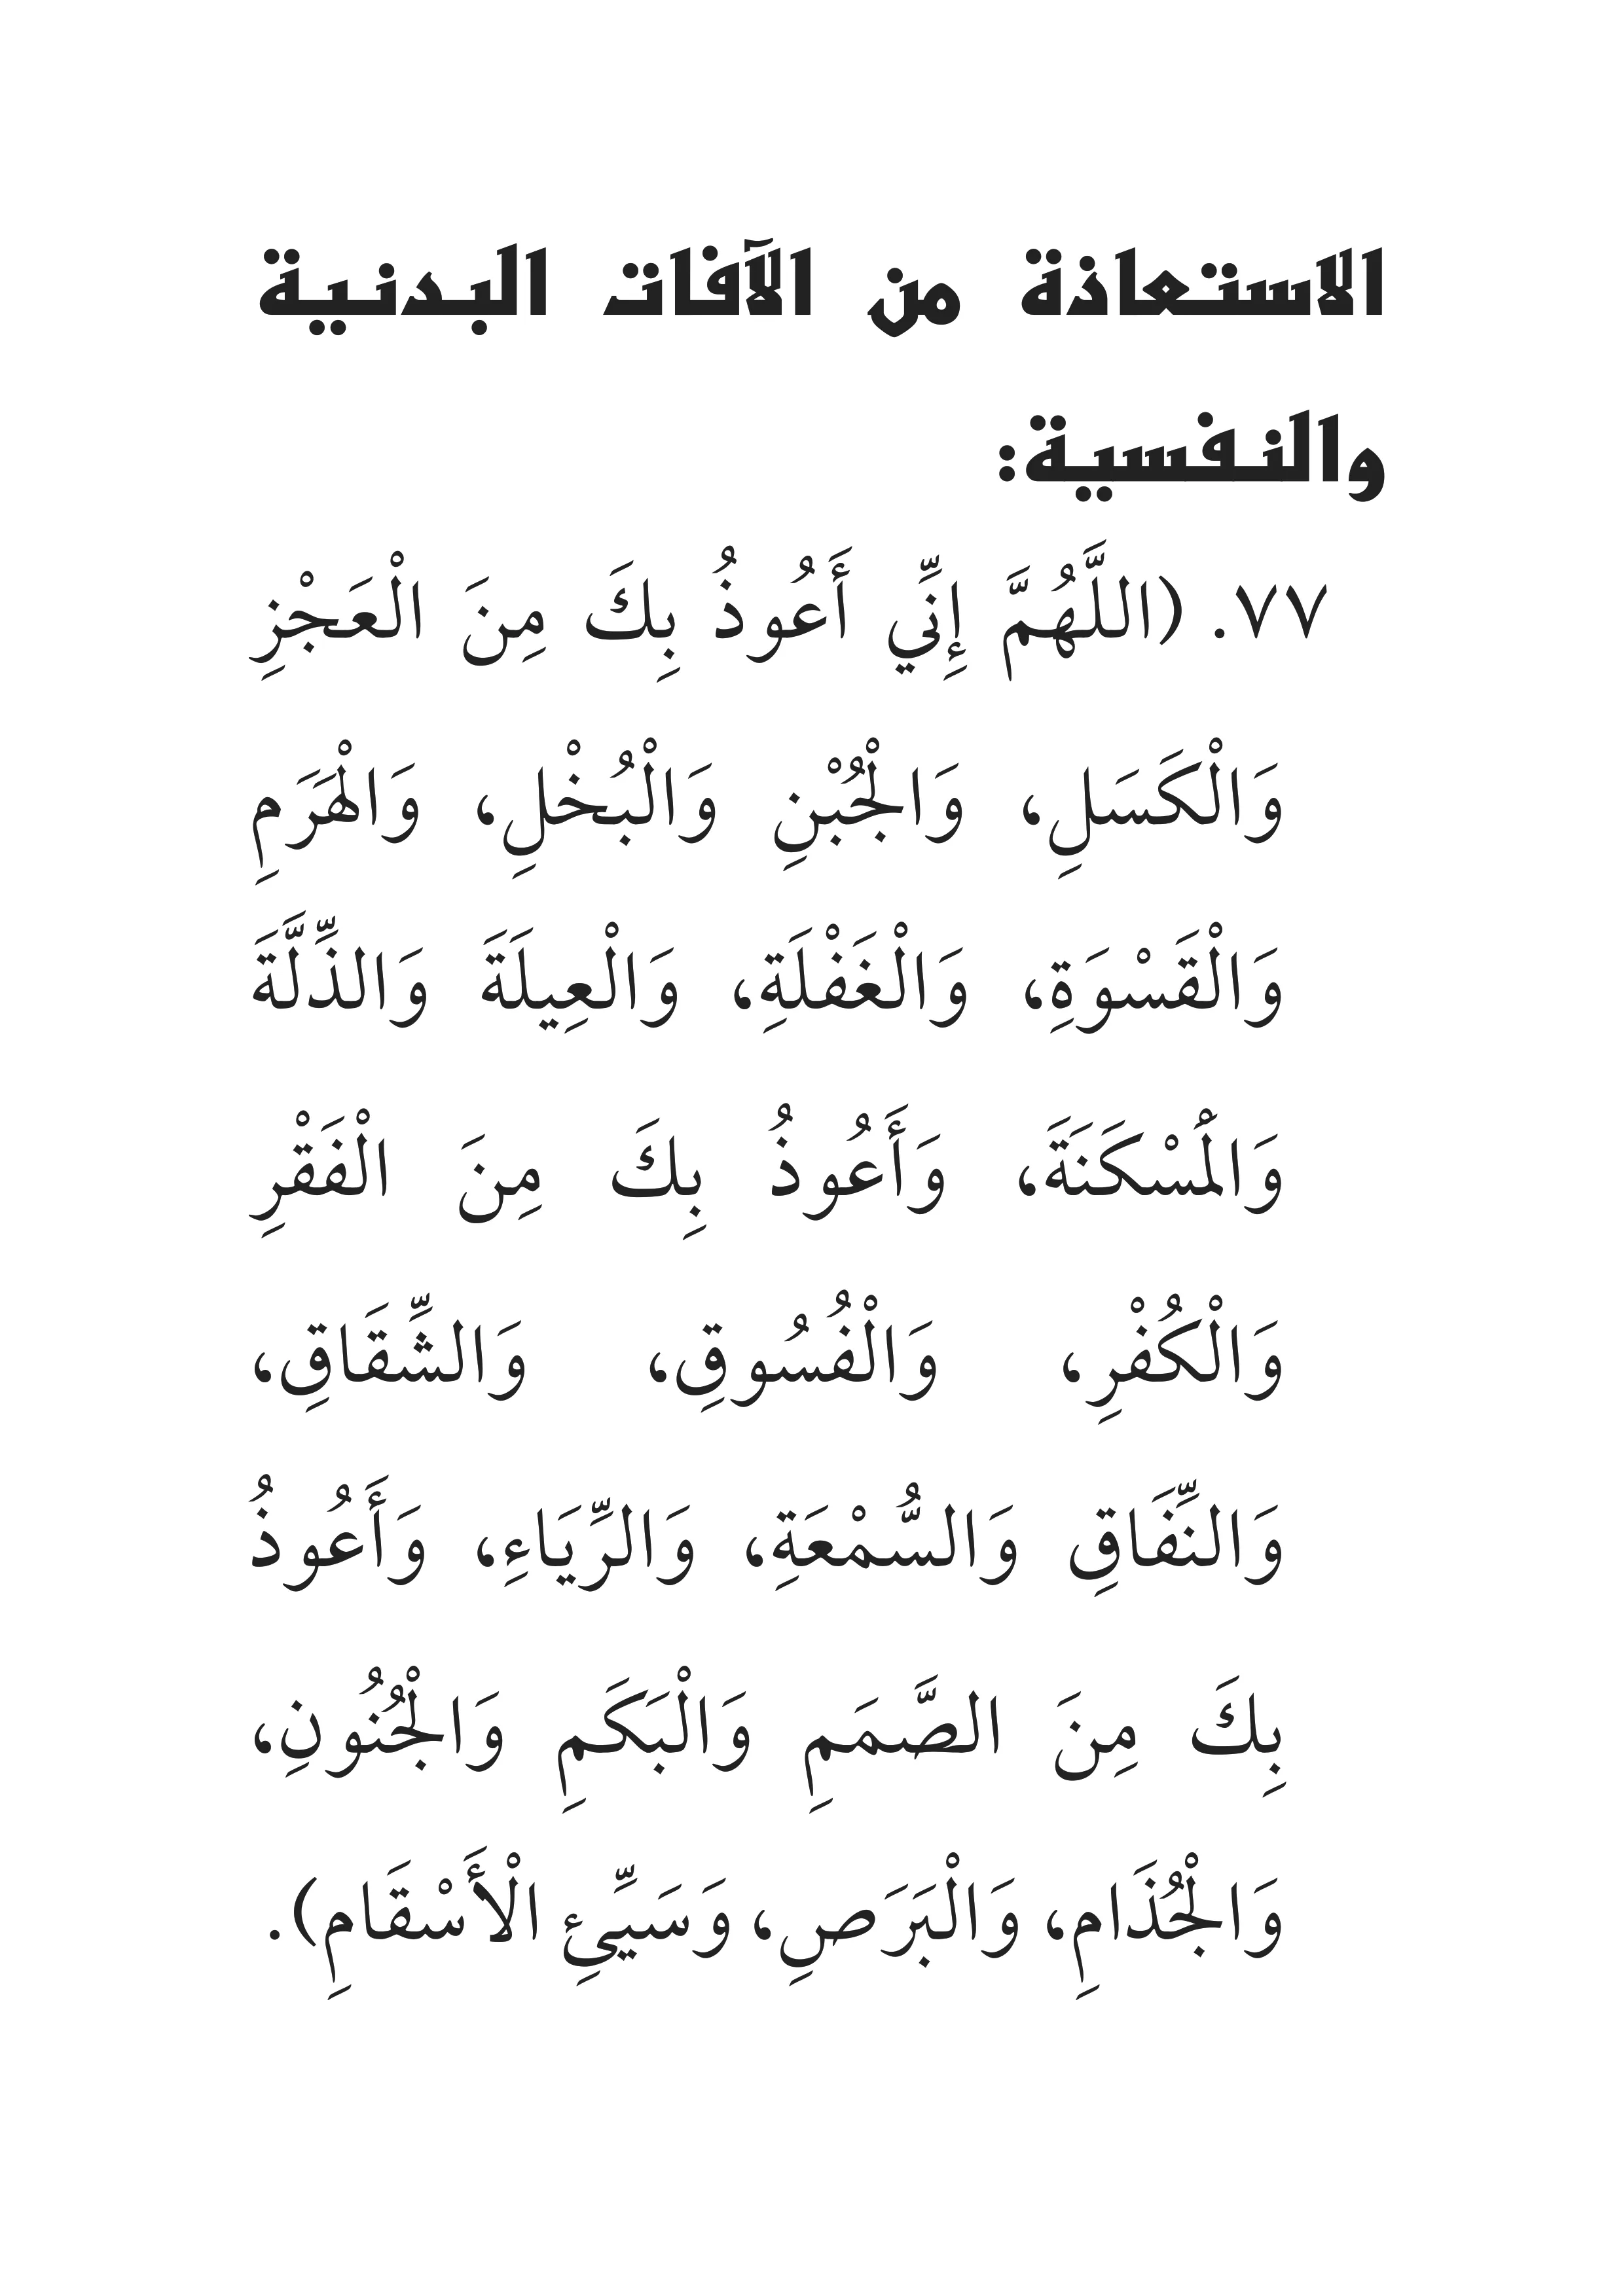 الاستعاذة من الآفات البدنية
والنفسية:
٧٧. (اللَّهُمَّ إِنِّي أَعُوذُ بِكَ مِنَ الْعَجْزِ
وَالْكَسَلِ، وَالْجُبْنِ وَالْبُخْلِ، وَالْهَرَمِ
وَالْقَسْوَةِ، وَالْغَفْلَةِ، وَالْعِيلَةَ وَالذِّلَّةَ
وَالْمُسْكَنَةَ، وَأَعُوذُ بِكَ مِنَ الْفَقْرِ
وَالْكُفْرِ، وَالْفُسُوقِ، وَالشِّقَاقِ،
وَالنِّفَاقِ وَالسُّمْعَةِ، وَالرِّيَاءِ، وَأَعُوذُ
بِكَ مِنَ الصَّمَمِ وَالْبَكَمِ وَالْجُنُونِ،
وَالْجُذَامِ، وَالْبَرَصِ، وَسَيِّئِ الْأَسْقَامِ).